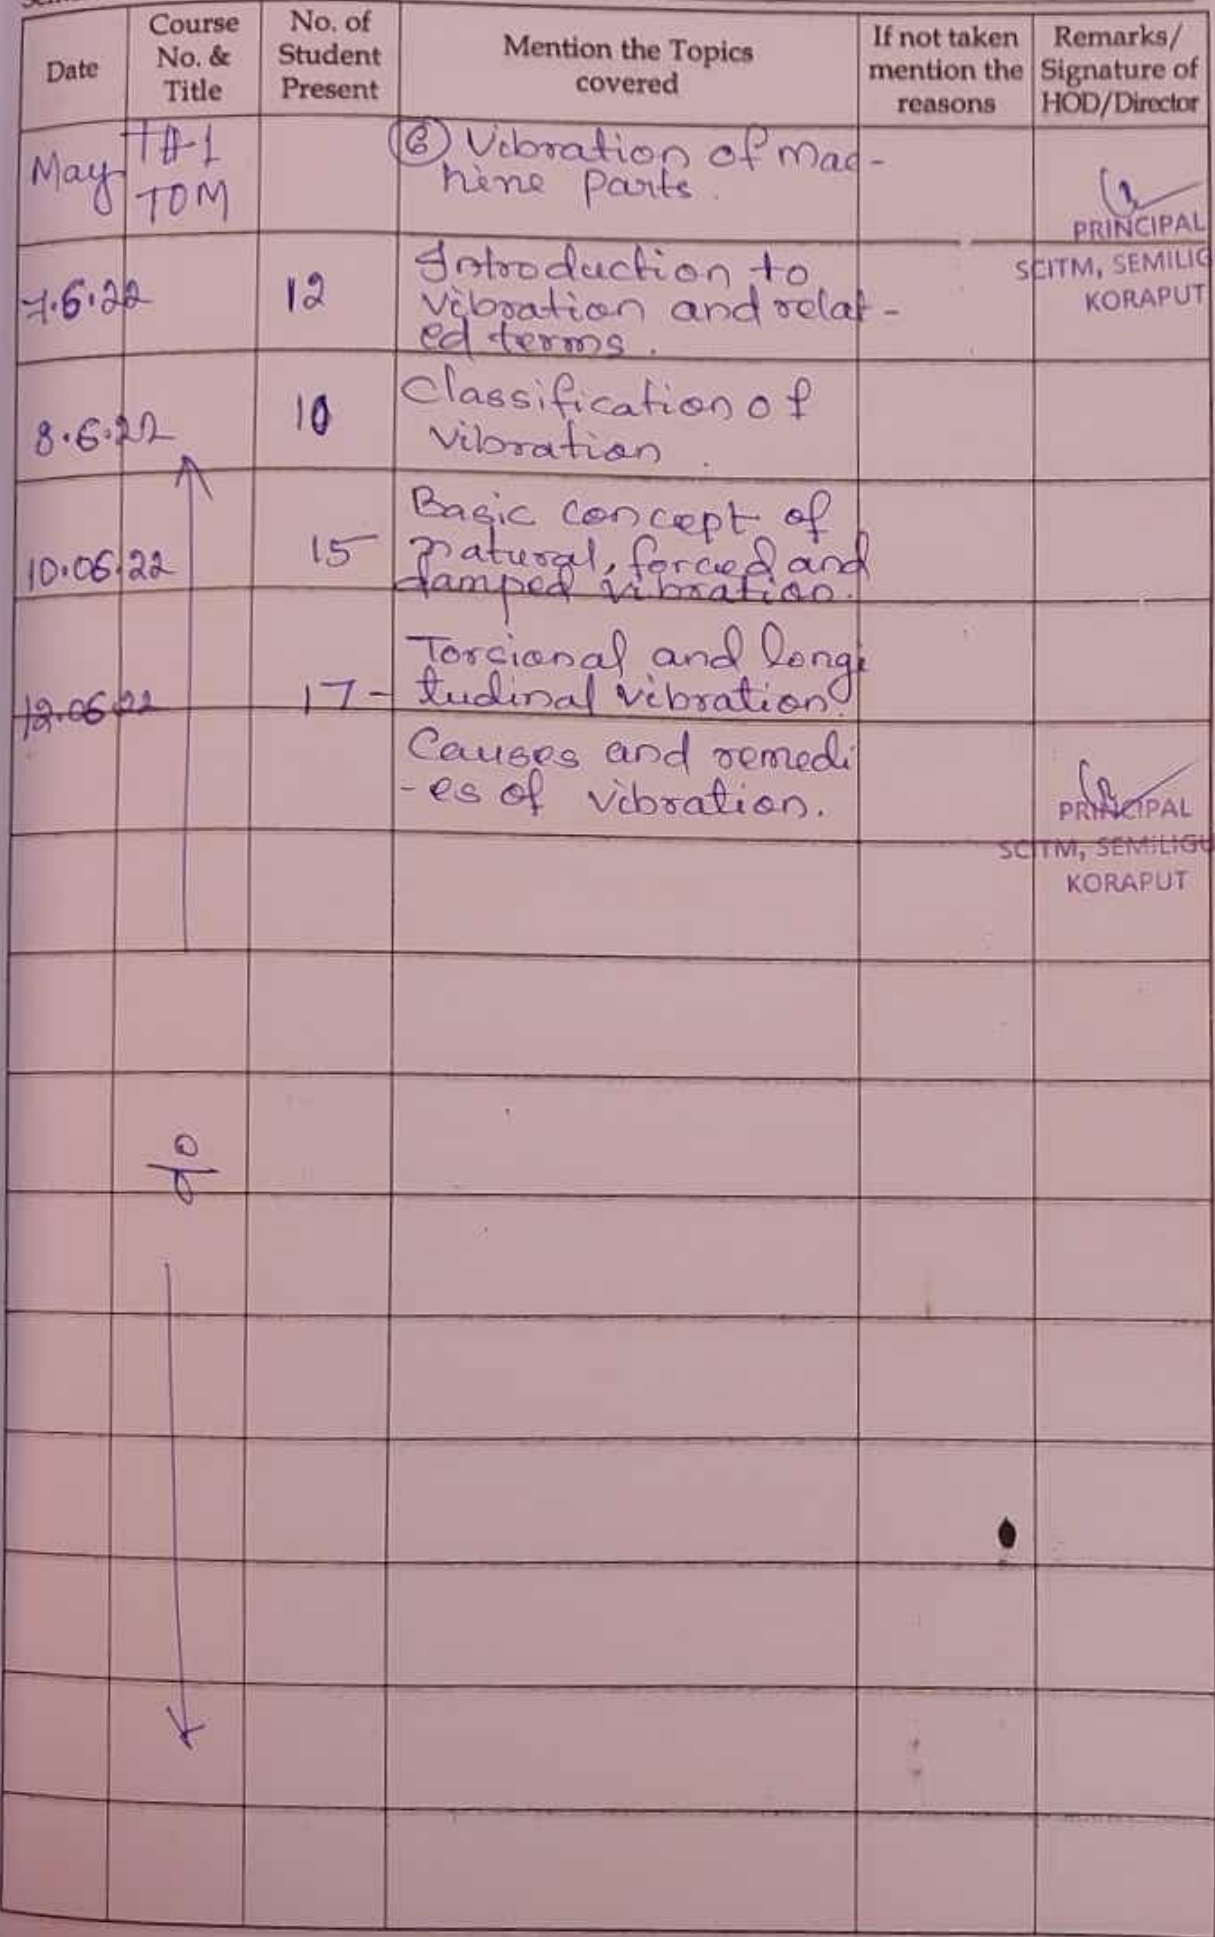 Date
Course
No. &
Title
No. of
Student
Present
Mention the Topics
covered
If not taken
mention the
reasons
Remarks/
Signature of
HOD/Director
May
TH-1
TOM
⑥ Vibration of Mac-
hine Parts.
PRINCIPAL
SCITM, SEMILIG
KORAPUT
7.6.22
12
Introduction to
vibration and relat-
ed terms.
8.6.22
10
Classification of
vibration.
10.06.22
15
Basic concept of
natural, forced and
damped vibration.
12.06.22
17
Torcional and longi
tudinal vibration.
Causes and remedi
-es of vibration.
PRINCIPAL
SCITM, SEMILIGU
KORAPUT